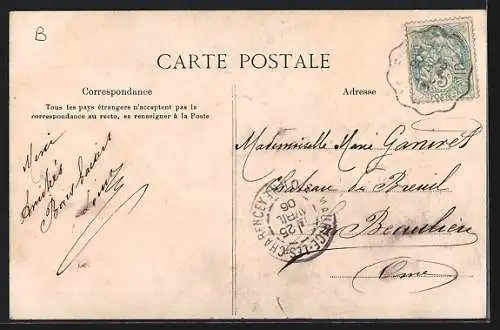 B
CARTE POSTALE
Correspondance
Tous les pays étrangers n'acceptent pas la
correspondance au recto, se renseigner à la Poste
Merci
Amitiés
Bons baisers
Adresse
Mademoiselle Marie
Château du Breuil
Beaulieu
Orne
25
AVRIL
06